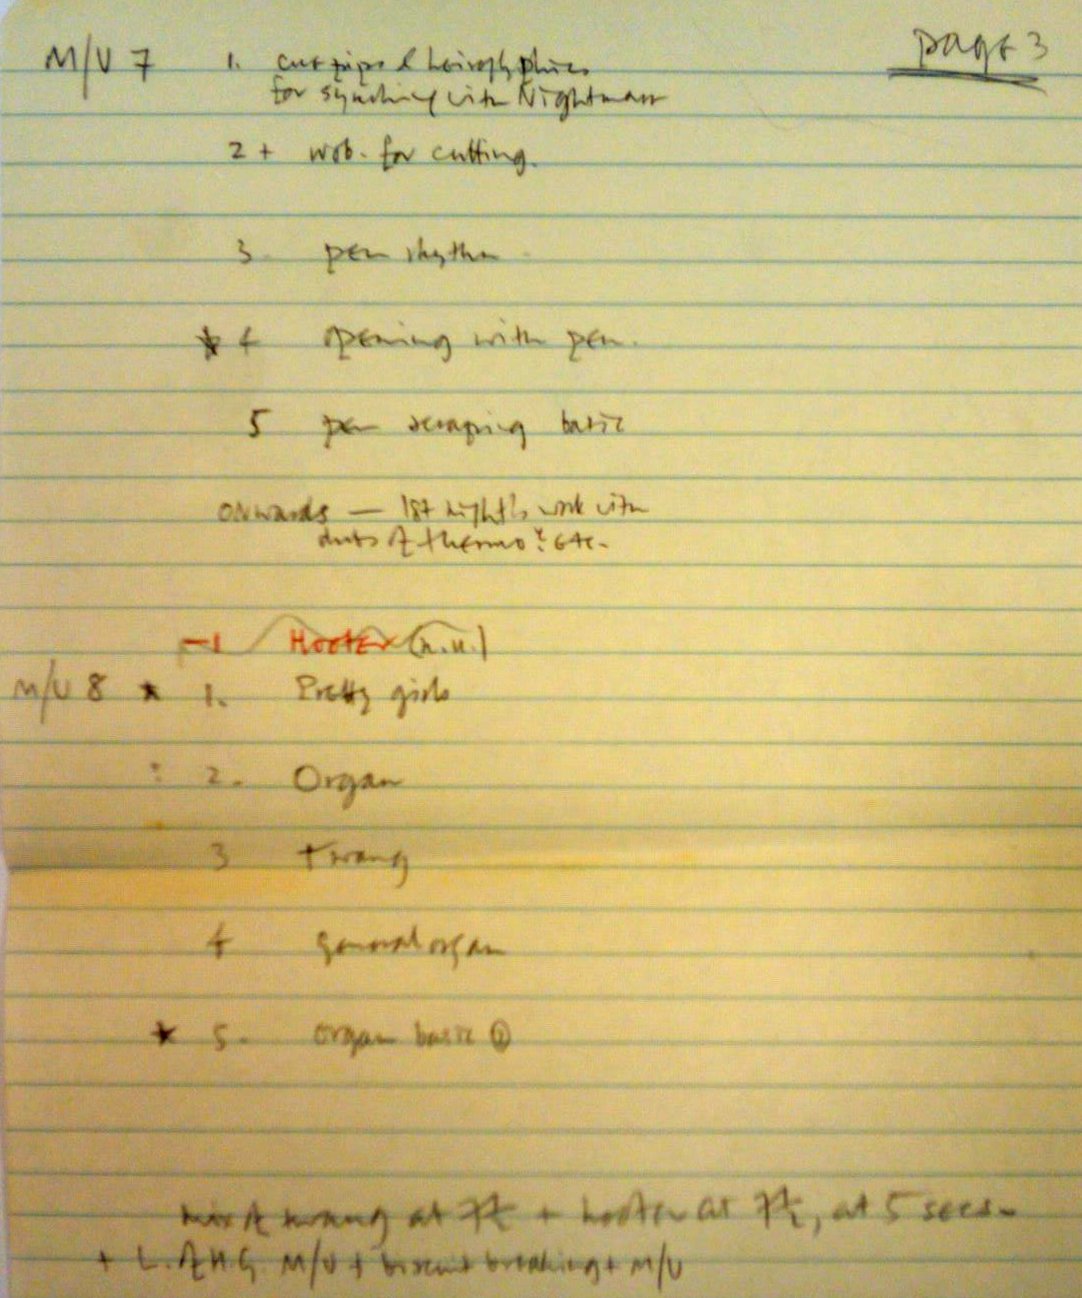 page 3
M/V 7 1. cut pips & heiroglyphics
for synching with Nightmare
2 + wob. for cutting.
3 pen rhythm
* 4 opening with pen.
5 pen scraping basic
onwards — 1st night's work with
of thermo: etc.
-1 Hooter (n.u.)
M/V 8 * 1. Pretty girls
: 2. Organ
3 twang
4 general organ
* 5. organ basic
mix of twang at 7½ + hooter at 7½, at 5 secs.
+ L. of H.G. M/V + biscuit breaking + M/V